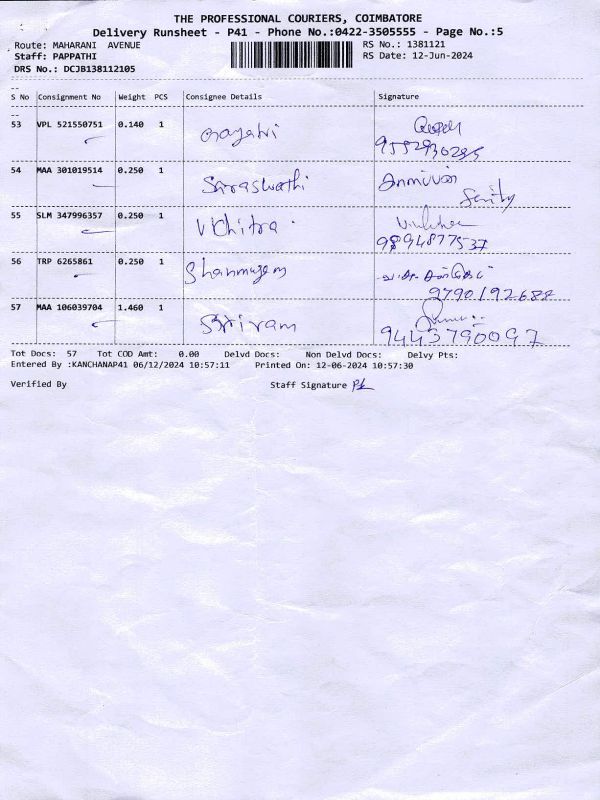 THE PROFESSIONAL COURIERS, COIMBATORE
Delivery Runsheet - P41 - Phone No.:0422-3505555 - Page No.:5
Route: MAHARANI AVENUE RS No.: 1381121
Staff: PAPPATHI RS Date: 12-Jun-2024
DRS No.: DCJB138112105
S No Consignment No Weight PCS Consignee Details Signature
53 VPL 521550751 0.140 1 Gayatri
54 MAA 301019514 0.250 1 Saraswathi
Security
55 SLM 347996357 0.250 1 Vichitra
9894877537
56 TRP 6265861 0.250 1 Shanmugam
9790192688
57 MAA 106039704 1.460 1 Sriram
9443790097
Tot Docs: 57 Tot COD Amt: 0.00 Delvd Docs: Non Delvd Docs: Delvy Pts:
Entered By :KANCHANAP41 06/12/2024 10:57:11 Printed On: 12-06-2024 10:57:30
Verified By Staff Signature